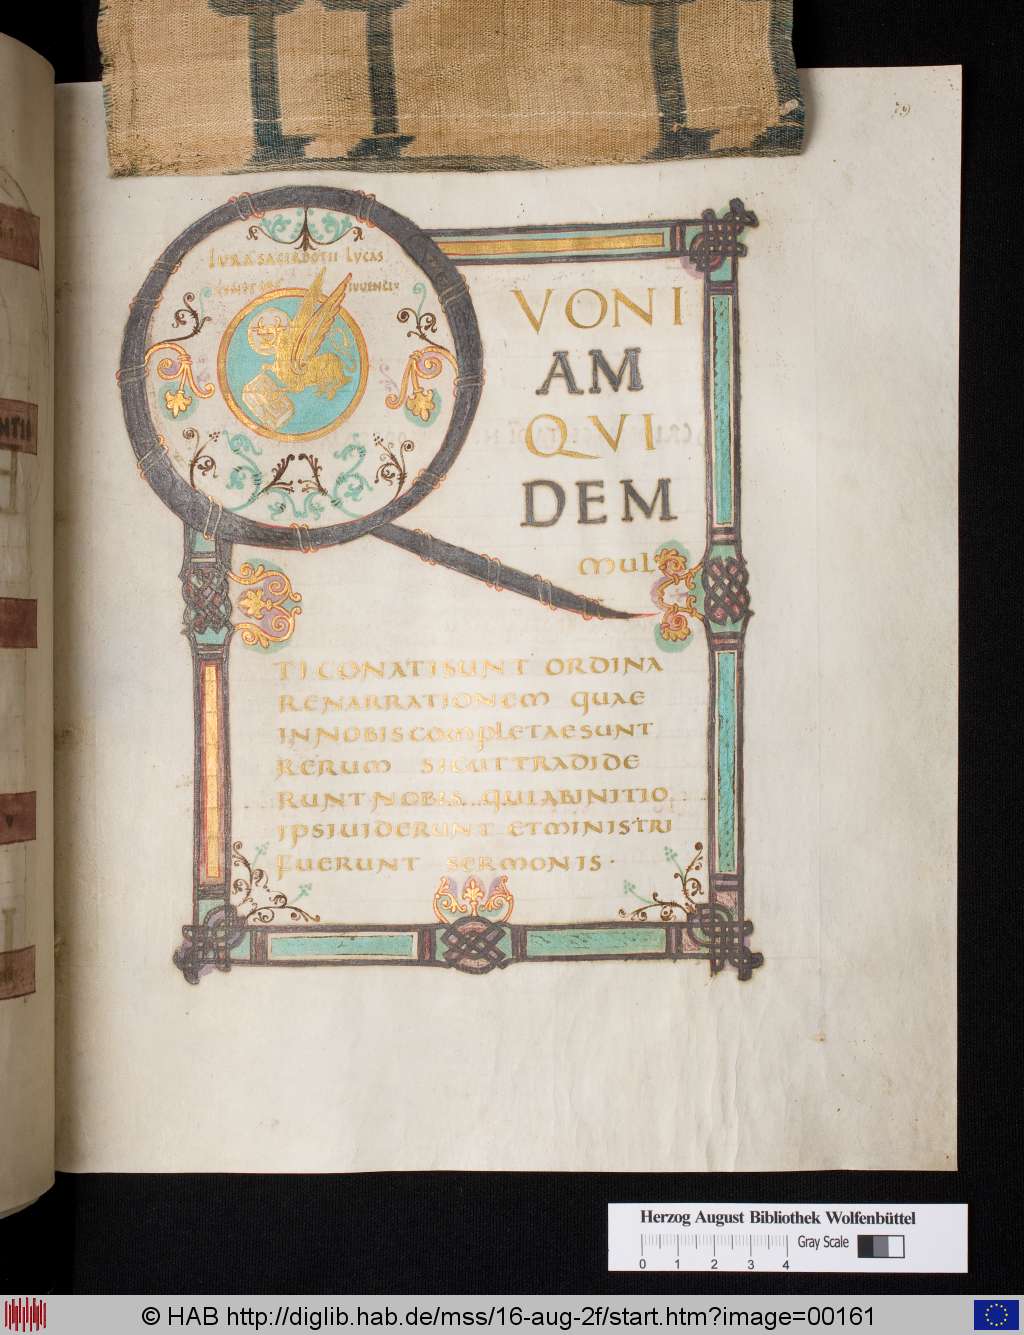 79
IURA SACERDOTII LUCAS
IUUENCI
Q
VONI
AM
QVI
DEM
mul
TI CONATI SUNT ORDINA
RE NARRATIONEM QUAE
IN NOBIS COMPLETAE SUNT
RERUM SICUT TRADIDE
RUNT NOBIS QUI AB INITIO
IPSI UIDERUNT ET MINISTRI
FUERUNT SERMONIS·
Herzog August Bibliothek Wolfenbüttel
Gray Scale
0 1 2 3 4
© HAB http://diglib.hab.de/mss/16-aug-2f/start.htm?image=00161